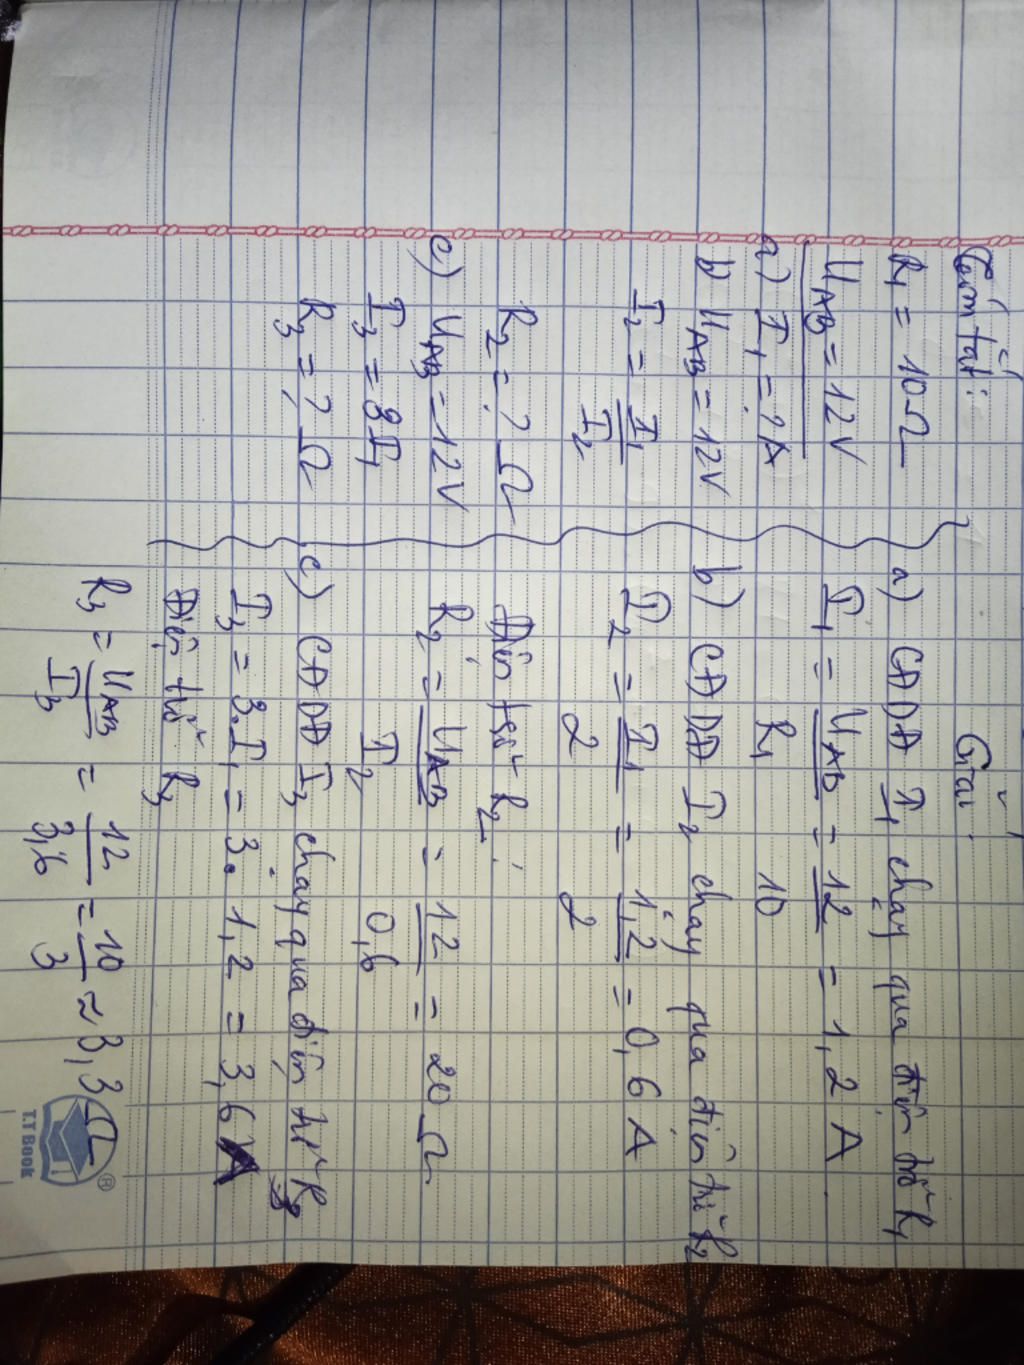 Tóm tắt:
R₁ = 10Ω
U_AB = 12V
a) I₁ = ? A
b) U_AB = 12V
I₂ = I₁/I₂
R₂ = ? Ω
c) U_AB = 12V
I₃ = 3I₁
R₃ = ? Ω
Giải:
a) CĐDĐ I₁ chạy qua điện trở R₁
I₁ = U_AB/R₁ = 12/10 = 1,2 A.
b) CĐDĐ I₂ chạy qua điện trở R₂
I₂ = I₁/2 = 1,2/2 = 0,6 A
Điện trở R₂:
R₂ = U_AB/I₂ = 12/0,6 = 20 Ω
c) CĐDĐ I₃ chạy qua điện trở R₃
I₃ = 3.I₁ = 3. 1,2 = 3,6 A
Điện trở R₃
R₃ = U_AB/I₃ = 12/3,6 = 10/3 ≈ 3,3 Ω
T.T BOOK ®